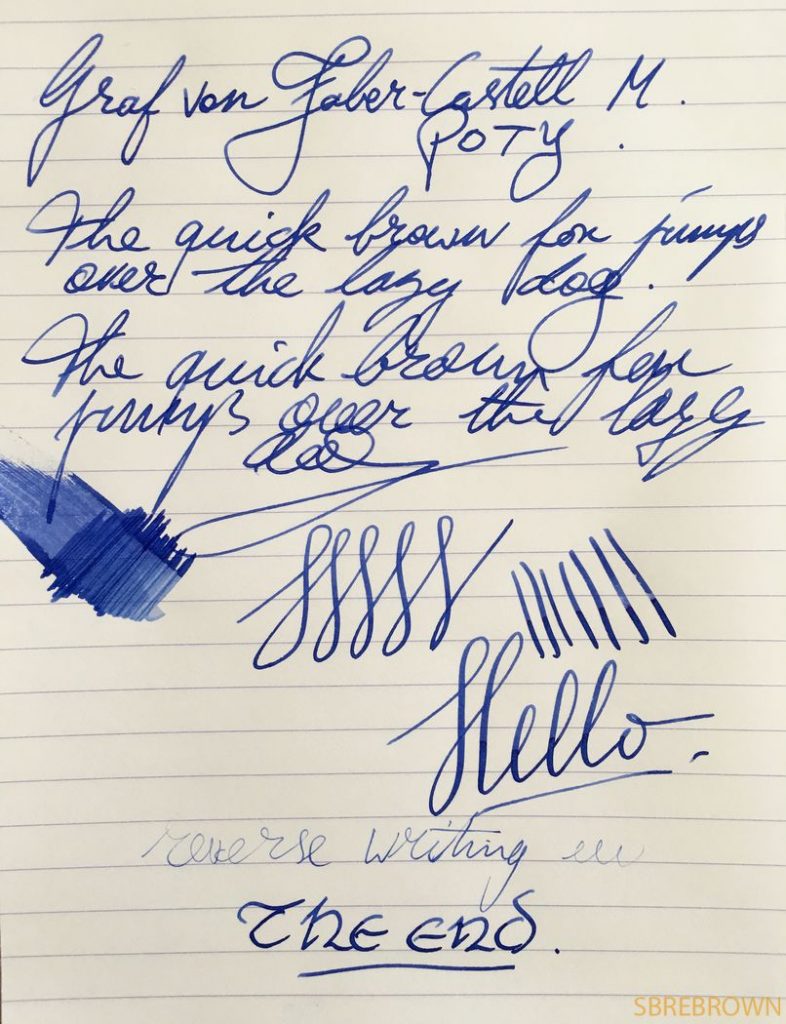 Graf von Faber-Castell M.
POTY.
The quick brown fox jumps
over the lazy dog.
The quick brown fox
jumps over the lazy
dog
Hello.
reverse writing
The end.
SBREBROWN